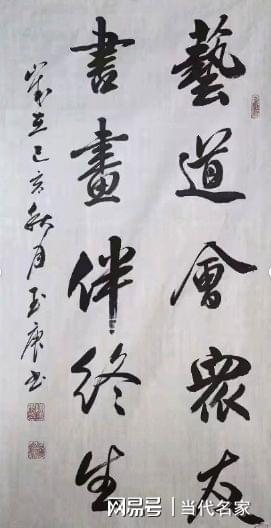 藝道會衆友
書畫伴終生
歲在己亥秋月玉康书
网易号 | 当代名家